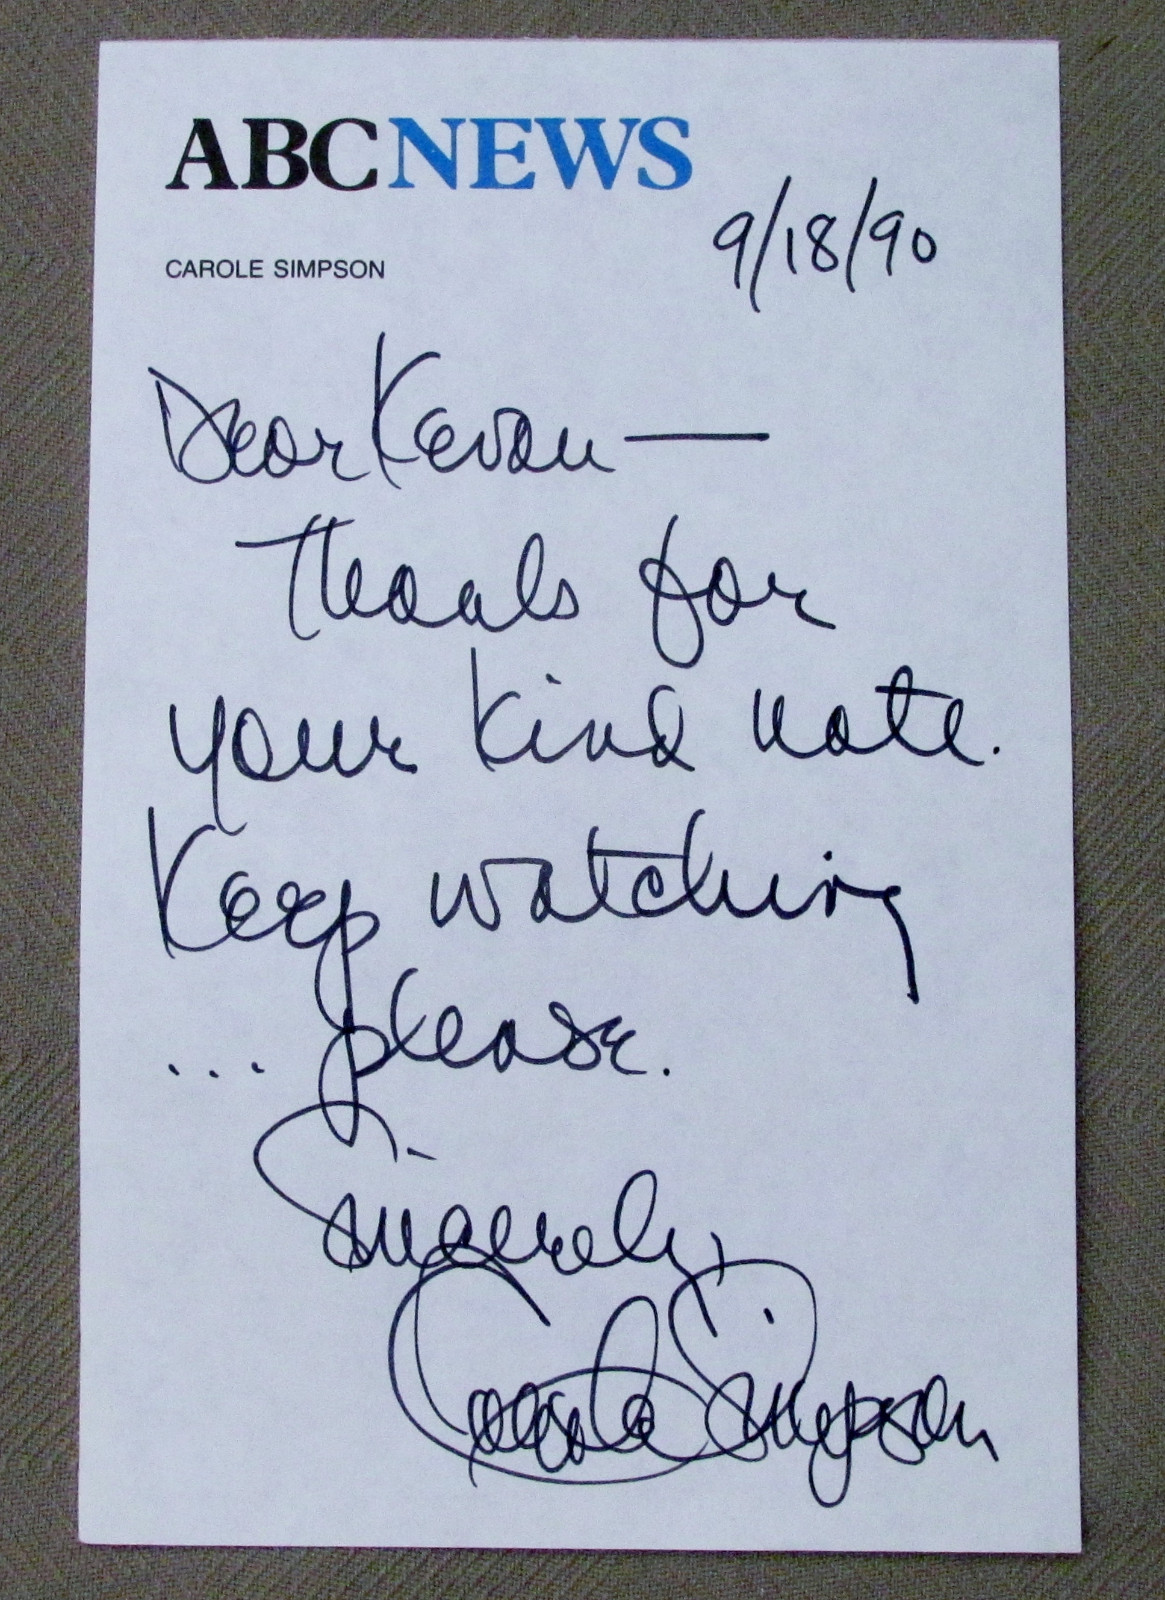 ABCNEWS
CAROLE SIMPSON
9/18/90
Dear Kevan —
Thanks for
your kind note.
Keep watching
... please.
Sincerely,
Carole Simpson